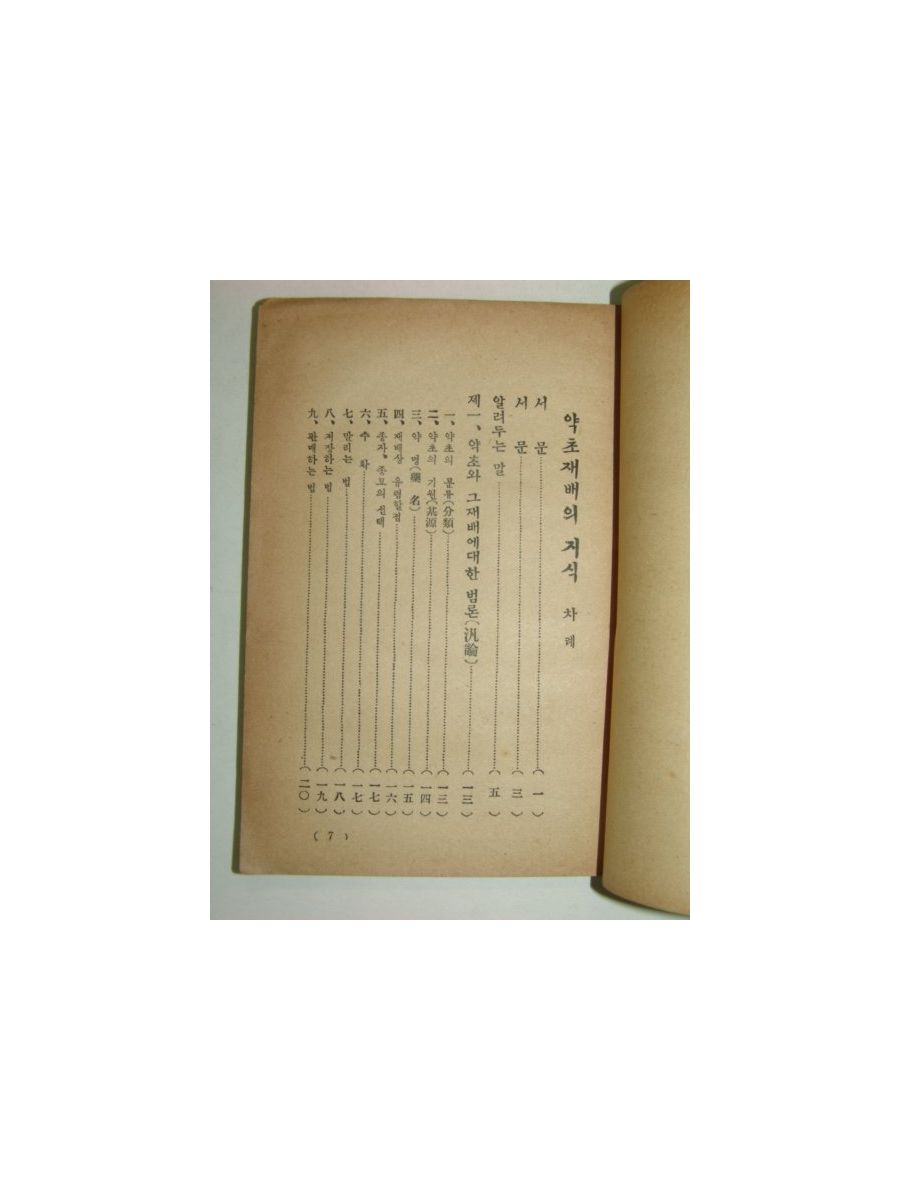 약초재배의 지식 차례
서문……(一)
서문……(三)
알려두는 말……(五)
제一、약초와 그재배에대한 범론(汎論)……(一三)
一、약초의 분류(分類)……(一三)
二、약초의 기원(基源)……(一四)
三、약명(藥名)……(一五)
四、재배상 유령할점……(一六)
五、종자、종묘의 선택……(一七)
六、수확……(一七)
七、말리는 법……(一八)
八、저장하는 법……(一九)
九、판매하는 법……(二〇)
(7)